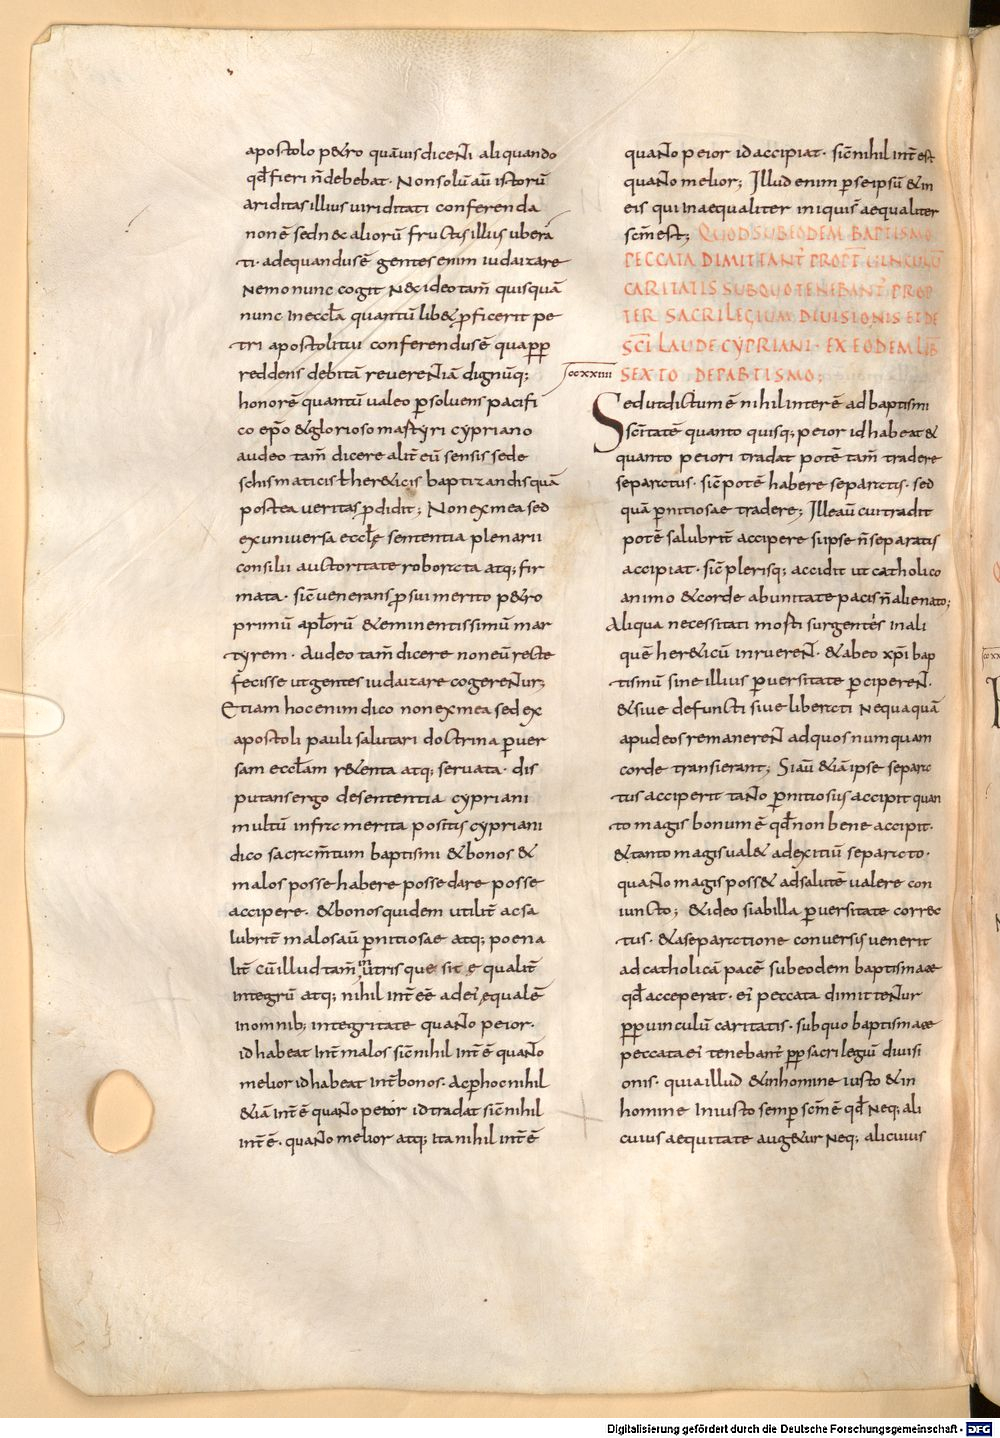 apostolo petro quāuis dicenti aliquando
qd̄ fieri n̄ debebat. Non solū aū istorū
ariditas illius uiriditati conferenda
non ē sed nec aliorū fructis illius uberta
ti. adequandus ē gentes enim iudaizare
Nemo nunc cogit Nec ideo tam̄ quisquā
nunc in eccl̄a quantū libet p̄ficerit pe
tri apostolitui conferendus ē quapp̄
reddens debitā reuerentiā dignūq;
honorē quantū ualeo p̄soluens pacifi
co ep̄o & glorioso martyri cypriano
audeo tam̄ dicere alit̄ eū sensisse de
schismaticis ł hereticis baptizandis quā
postea ueritas p̄didit; Non ex mea sed
ex uniuersa eccl̄ę sententia plenarii
consilii auctoritate roborata atq; fir
mata. sic̄ uenerans p̄ sui merito petro
primū apl̄orū & eminentissimū mar
tyrem. Audeo tam̄ dicere non eū recte
fecisse ut gentes iudaizare cogerentur;
Etiam hoc enim dico non ex mea sed ex
apostoli pauli salutari doctrina p̄ uer
sam eccl̄am retenta atq; seruata. dis
putans ergo de sententia cypriani
multū infra merita positis cypriani
dico sacram̄tum baptismi & bonos &
malos posse habere posse dare posse
accipere. & bonos quidem utilit̄ ac sa
lubrit̄ malos aū p̄nitiosae atq; poena
lit̄ cū illud tam̄ in utrisque sit ę qualit̄
integrū atq; nihil int̄ēē ad ei ęqualē
in omnib; integritate quanto peior.
id habeat int̄ malos sic̄ nihil int̄ē quanto
melior id habeat int̄ bonos. ac p̄ hoc nihil
& iā int̄ē quanto peior id tradat sic̄ nihil
int̄ē. quanto melior atq; ita nihil int̄ē
quanto peior id accipiat. sic̄ nihil int̄ est
quanto melior; Illud enim p̄ se ipsū & in
eis qui inaequaliter iniqui s̄ aequaliter
sc̄m est; QUOD SUB EODEM BAPTISMO
PECCATA DIMITTANT̄ PROPT̄ UINCULŪ
CARITATIS SUB QUO TENEBANT̄ PROP
TER SACRILEGIUM DIUISIONIS ET DE
SC̄I LAUDE CYPRIANI. EX EODEM LIB
ccxxiiii SEXTO DE BABTISMO;
Sed ut dictum ē nihil inter ē ad baptismi
sc̄itatē quanto quisq; peior id habeat &
quanto peiori tradat potē tam̄ tradere
separatus. sic̄ potē habere separatis. sed
quā p̄nitiosae tradere; Ille aū cui tradit
potē salubrit̄ accipere si ipse n̄ separatis
accipiat. sic̄ plerisq; accidit ut catholico
animo & corde ab unitate pacis n̄ alienato;
Aliqua necessitati mortis urgentes in ali
quē hereticū inruerent. & ab eo xp̄i bap
tismū sine illius p̄uersitate p̄ciperent.
& siue defuncti siue liberati Nequaquā
apud eos remanerent ad quos numquam
corde transierant; Si aū & iā ipse separa
tus acciperit tanto p̄nitiosius accipit quan
to magis bonum ē qd̄ non bene accipit.
& tanto magis ualet ad exitiū separato.
quanto magis posset ad salutē ualere con
iuncto; & ideo si ab illa p̄uersitate correc
tus. & a separatione conuersis uenerit
ad catholicā pacē sub eodem baptismate
qd̄ acceperat. ei peccata dimittentur
pp̄ uinculū caritatis. sub quo baptismate
peccata ei tenebant̄ pp̄ sacrilegiū diuisi
onis. quia illud & in homine iusto & in
homine iniusto semp̄ sc̄m ē qd̄ Neq; ali
cuius aequitate augetur Neq; alicuius
Digitalisierung gefördert durch die Deutsche Forschungsgemeinschaft - DFG